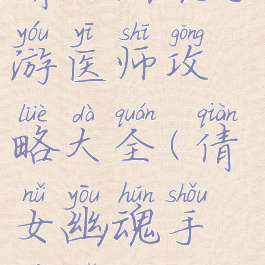 yóu yī shī gōng
游医师攻
lüè dà quán qiàn
略大全(倩
nǚ yōu hún shǒu
女幽魂手